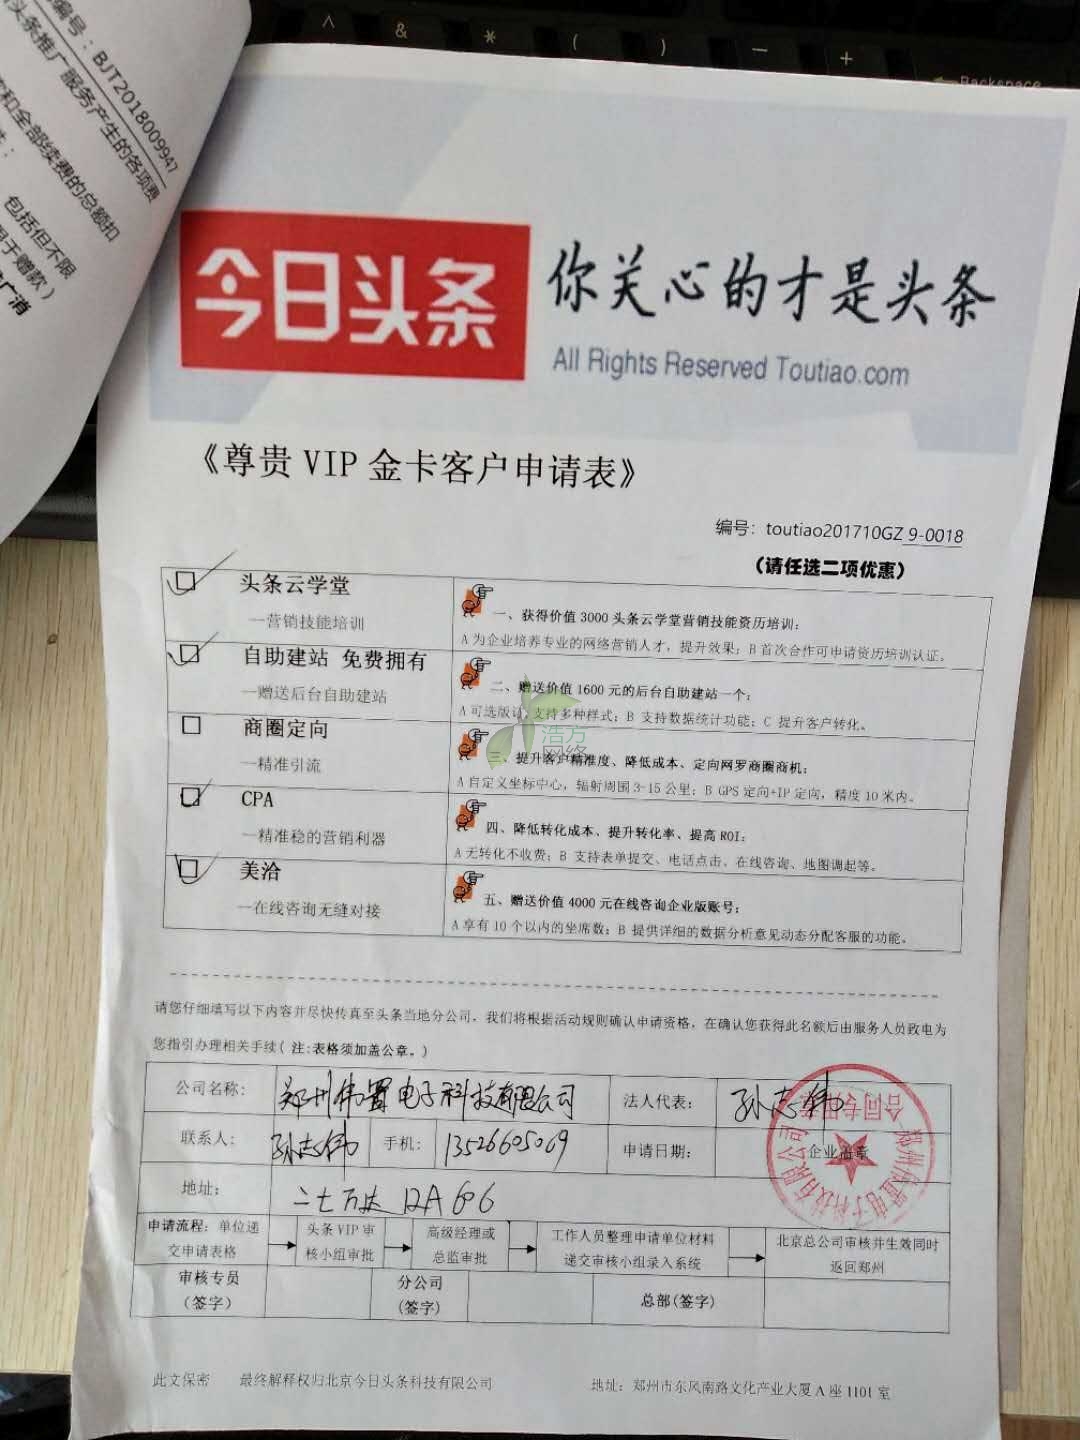 编号：BJT2018009947
头条推广服务产生的各项费
和全部续费的总额扣
包括但不限
于赠款）
广消
Backspace
今日头条
你关心的才是头条
All Rights Reserved Toutiao.com
《尊贵 VIP 金卡客户申请表》
编号：toutiao201710GZ 9-0018
（请任选二项优惠）
头条云学堂
一营销技能培训
一、获得价值 3000 头条云学堂营销技能资历培训：
A 为企业培养专业的网络营销人才，提升效果；B 首次合作可申请资历培训认证。
自助建站 免费拥有
一赠送后台自助建站
二、赠送价值 1600 元的后台自助建站一个：
A 可选版 支持多种样式；B 支持数据统计功能；C 提升客户转化。
浩方
网络
商圈定向
一精准引流
三、提升客户精准度、降低成本、定向网罗商圈商机：
A 自定义坐标中心，辐射周围 3-15 公里；B GPS 定向+IP 定向，精度 10 米内。
CPA
一精准稳的营销利器
四、降低转化成本、提升转化率、提高 ROI：
A 无转化不收费；B 支持表单提交、电话点击、在线咨询、地图调起等。
美洽
一在线咨询无缝对接
五、赠送价值 4000 元在线咨询企业版账号：
A 享有 10 个以内的坐席数；B 提供详细的数据分析意见动态分配客服的功能。
请您仔细填写以下内容并尽快传真至头条当地分公司，我们将根据活动规则确认申请资格，在确认您获得此名额后由服务人员致电为
您指引办理相关手续（注：表格须加盖公章。）
公司名称： 郑州伟置电子科技有限公司 法人代表： 孙志伟
联系人： 孙志伟 手机： 13526605069 申请日期： 企业盖章
合同专用章
地址： 二七万达 12A 606
申请流程：单位递交申请表格 头条 VIP 审核小组审批 高级经理或总监审批 工作人员整理申请单位材料递交审核小组录入系统 北京总公司审核并生效同时返回郑州
审核专员（签字） 分公司（签字） 总部（签字）
此文保密 最终解释权归北京今日头条科技有限公司 地址：郑州市东风南路文化产业大厦 A 座 1101 室